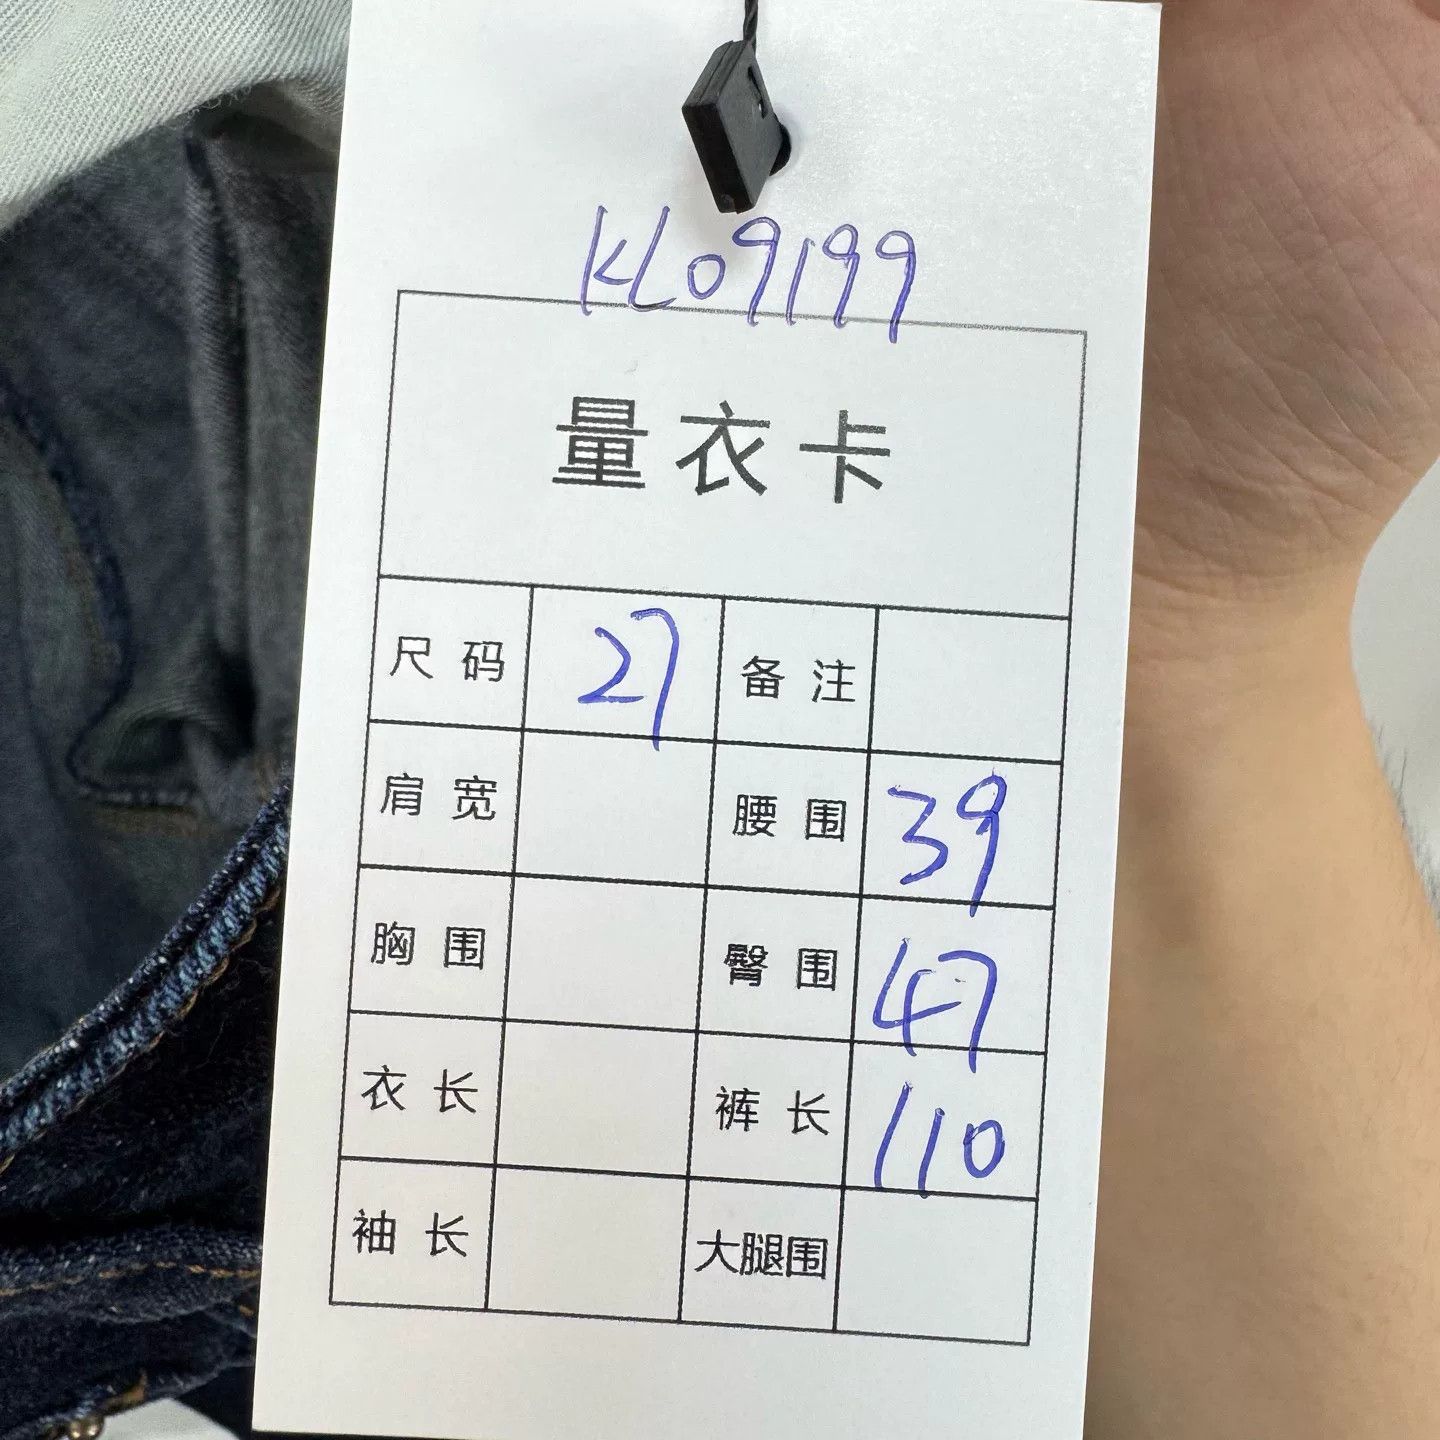 KL09199
量衣卡
尺码 27 备注
肩宽 腰围 39
胸围 臀围 47
衣长 裤长 110
袖长 大腿围